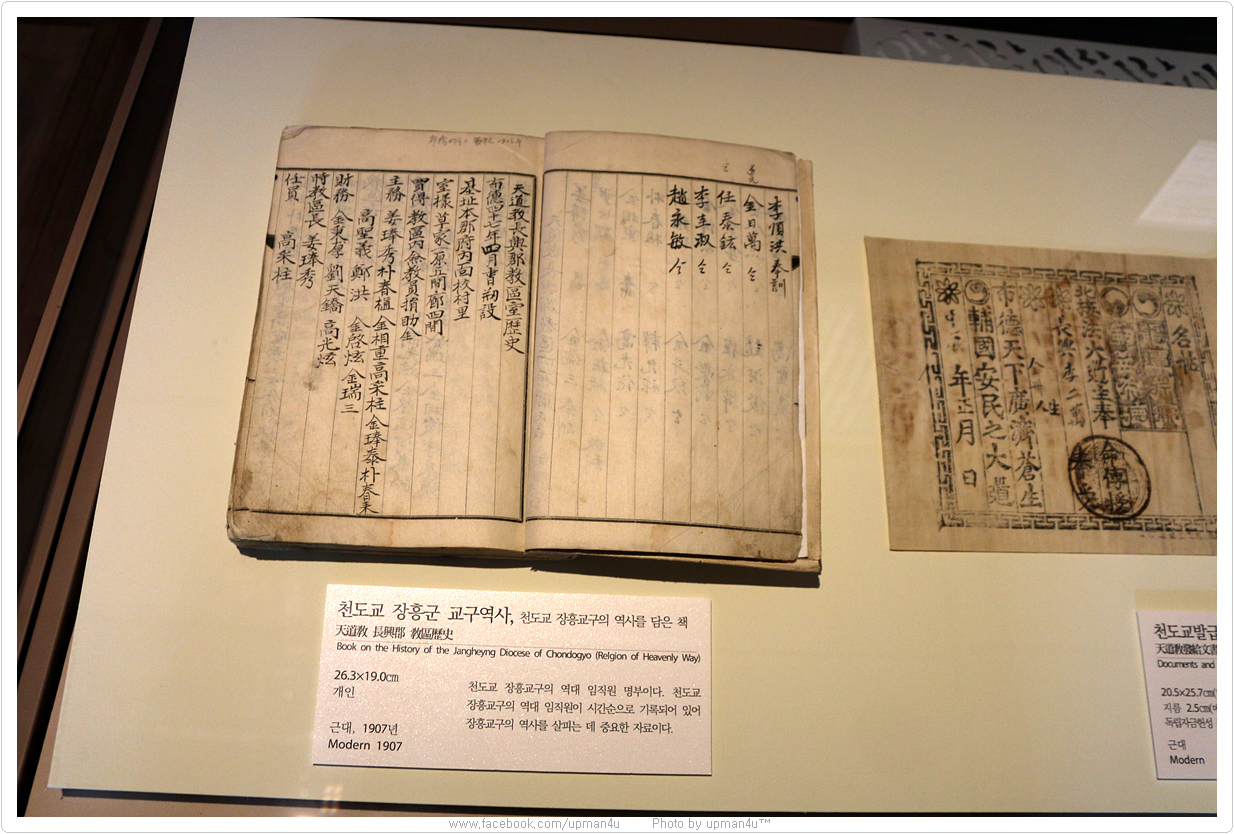 李順洪 奉訓
金日萬 仝
任泰鉉 仝
李圭淑 仝
趙永敏 仝
天道敎長興郡敎區室歷史
布德四十七年四月曾朔設
基址本郡府內面校村里
室樣草家一原五間廊四間
買得敎區內僉敎員捐助金
主務 姜琫秀 朴春樴 金相重 高采柱 金瑧泰 朴春杲
高聖義 鄭洪 金啓炫 金瑞三
財務 金秉厚 劉天鐫 高光炫
時敎區長 姜琫秀
任員 高采柱
名帖
北接法大道主奉
長興 李二萬
人生
布德天下廣濟蒼生
輔國安民之大道
年正月 日
命傳授
천도교 장흥군 교구역사, 천도교 장흥교구의 역사를 담은 책
天道敎 長興郡 敎區歷史
Book on the History of the Jangheyng Diocese of Chondogyo (Relgion of Heavenly Way)
26.3×19.0㎝
개인
근대, 1907년
Modern 1907
천도교 장흥교구의 역대 임직원 명부이다. 천도교
장흥교구의 역대 임직원이 시간순으로 기록되어 있어
장흥교구의 역사를 살피는 데 중요한 자료이다.
천도교발급
天道敎發給文書
Documents and
20.5×25.7㎝
지름 2.5㎝
독립자금헌성
근대
Modern
www.facebook.com/upman4u Photo by upman4u™